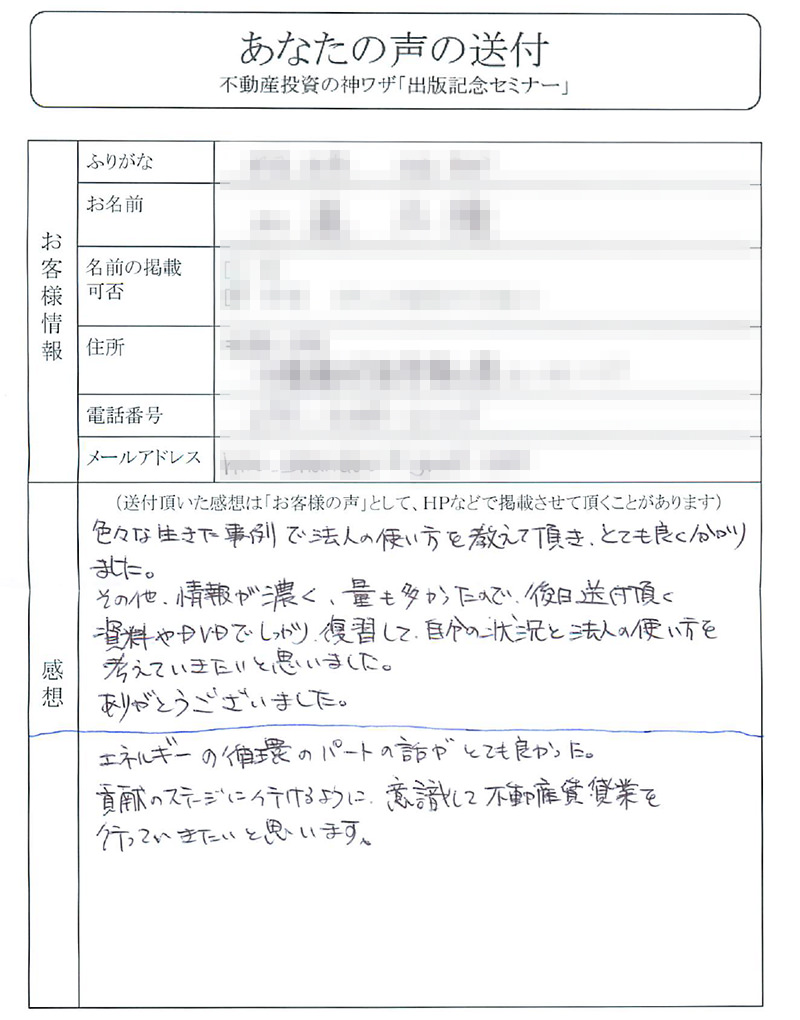 あなたの声の送付
不動産投資の神ワザ「出版記念セミナー」
お客様情報
ふりがな
お名前
名前の掲載
可否
住所
電話番号
メールアドレス
感想
（送付頂いた感想は「お客様の声」として、HPなどで掲載させて頂くことがあります）
色々な生きた事例で法人の使い方を教えて頂き、とても良く分かり
ました。
その他、情報が濃く、量も多かったので、後日送付頂く
資料やDVDでしっかり復習して、自分の状況と法人の使い方を
考えていきたいと思いました。
ありがとうございました。
エネルギーの循環のパートの話がとても良かった。
貢献のステージに行けるように、意識して不動産賃貸業を
行っていきたいと思います。